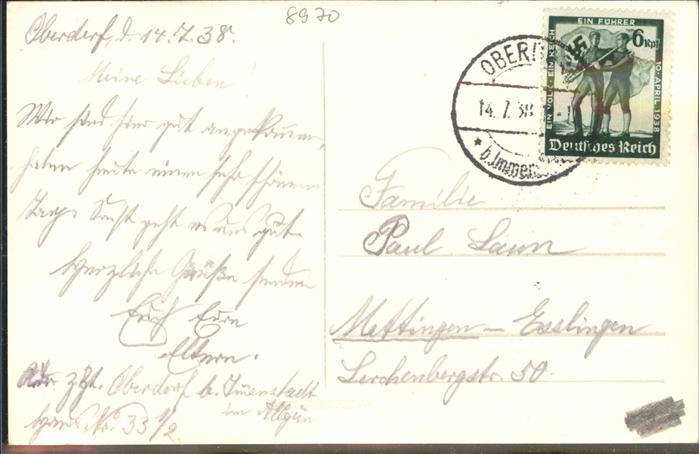 8970
Oberdorf, d. 14.7.38.
Meine Lieben!
Wir sind hier gut angekommen,
haben heute einen sehr schönen
Tag. Sonst geht es uns gut.
Herzliche Grüße senden
Euch Eure
Eltern.
Adr. z. Zt. Oberdorf b. Immenstadt
im Allgäu
Haus Nr. 33 1/2
OBER
14.7.38
b. Immen
EIN VOLK · EIN REICH
EIN FÜHRER
10. APRIL 1938
6 Rpf
Deutsches Reich
Familie
Paul Laun
Mettingen – Esslingen
Lerchenbergstr. 50